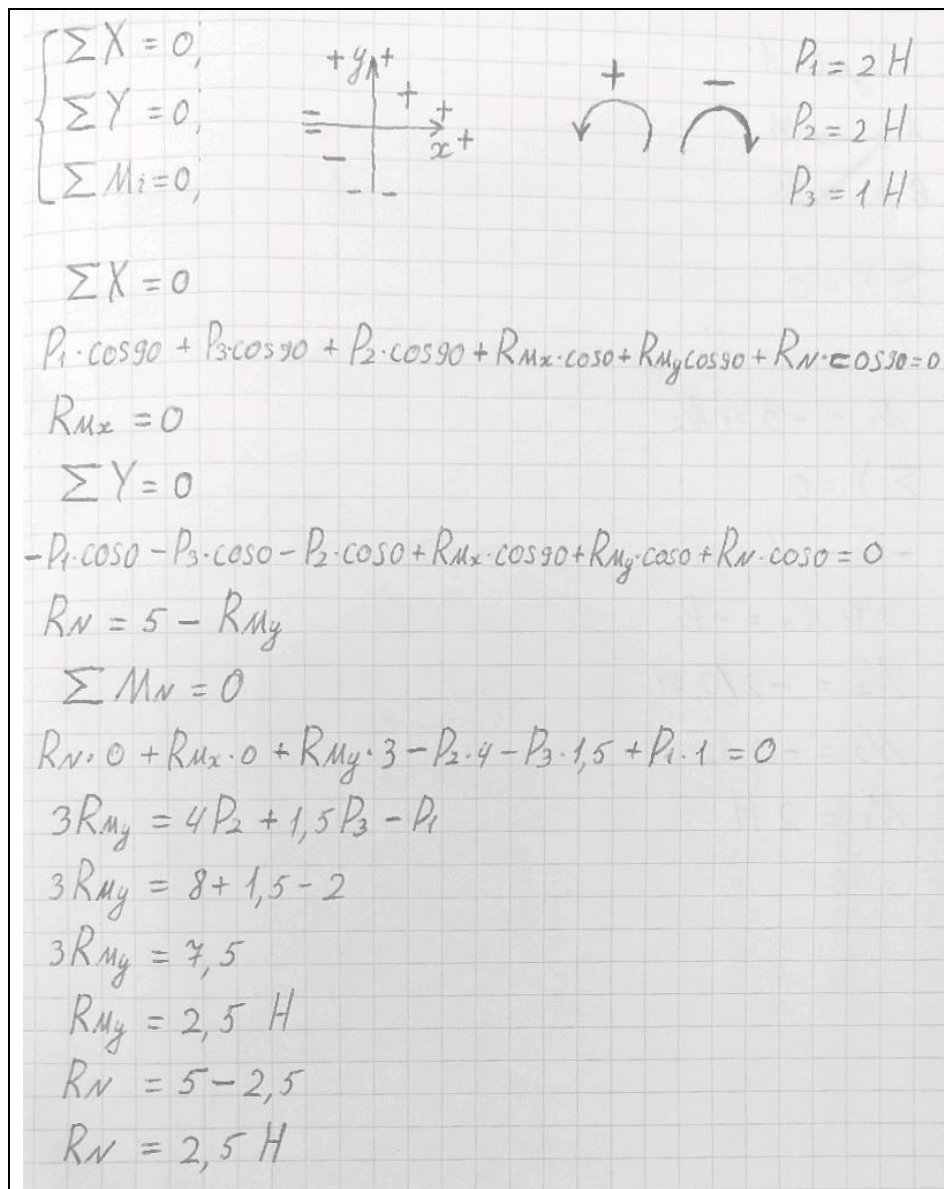 ΣX = 0; +y + P₁ = 2 H
+ + + −
ΣY = 0; = x + P₂ = 2 H
−
ΣMᵢ = 0; − − P₃ = 1 H
ΣX = 0
P₁·cos90 + P₃·cos90 + P₂·cos90 + Rмₓ·cos0 + Rмy cos90 + R_N·cos90 = 0
Rмₓ = 0
ΣY = 0
−P₁·cos0 − P₃·cos0 − P₂·cos0 + Rмₓ·cos90 + Rмy·cos0 + R_N·cos0 = 0
R_N = 5 − Rмy
ΣM_N = 0
R_N·0 + Rмₓ·0 + Rмy·3 − P₂·4 − P₃·1,5 + P₁·1 = 0
3Rмy = 4P₂ + 1,5P₃ − P₁
3Rмy = 8 + 1,5 − 2
3Rмy = 7,5
Rмy = 2,5 H
R_N = 5 − 2,5
R_N = 2,5 H